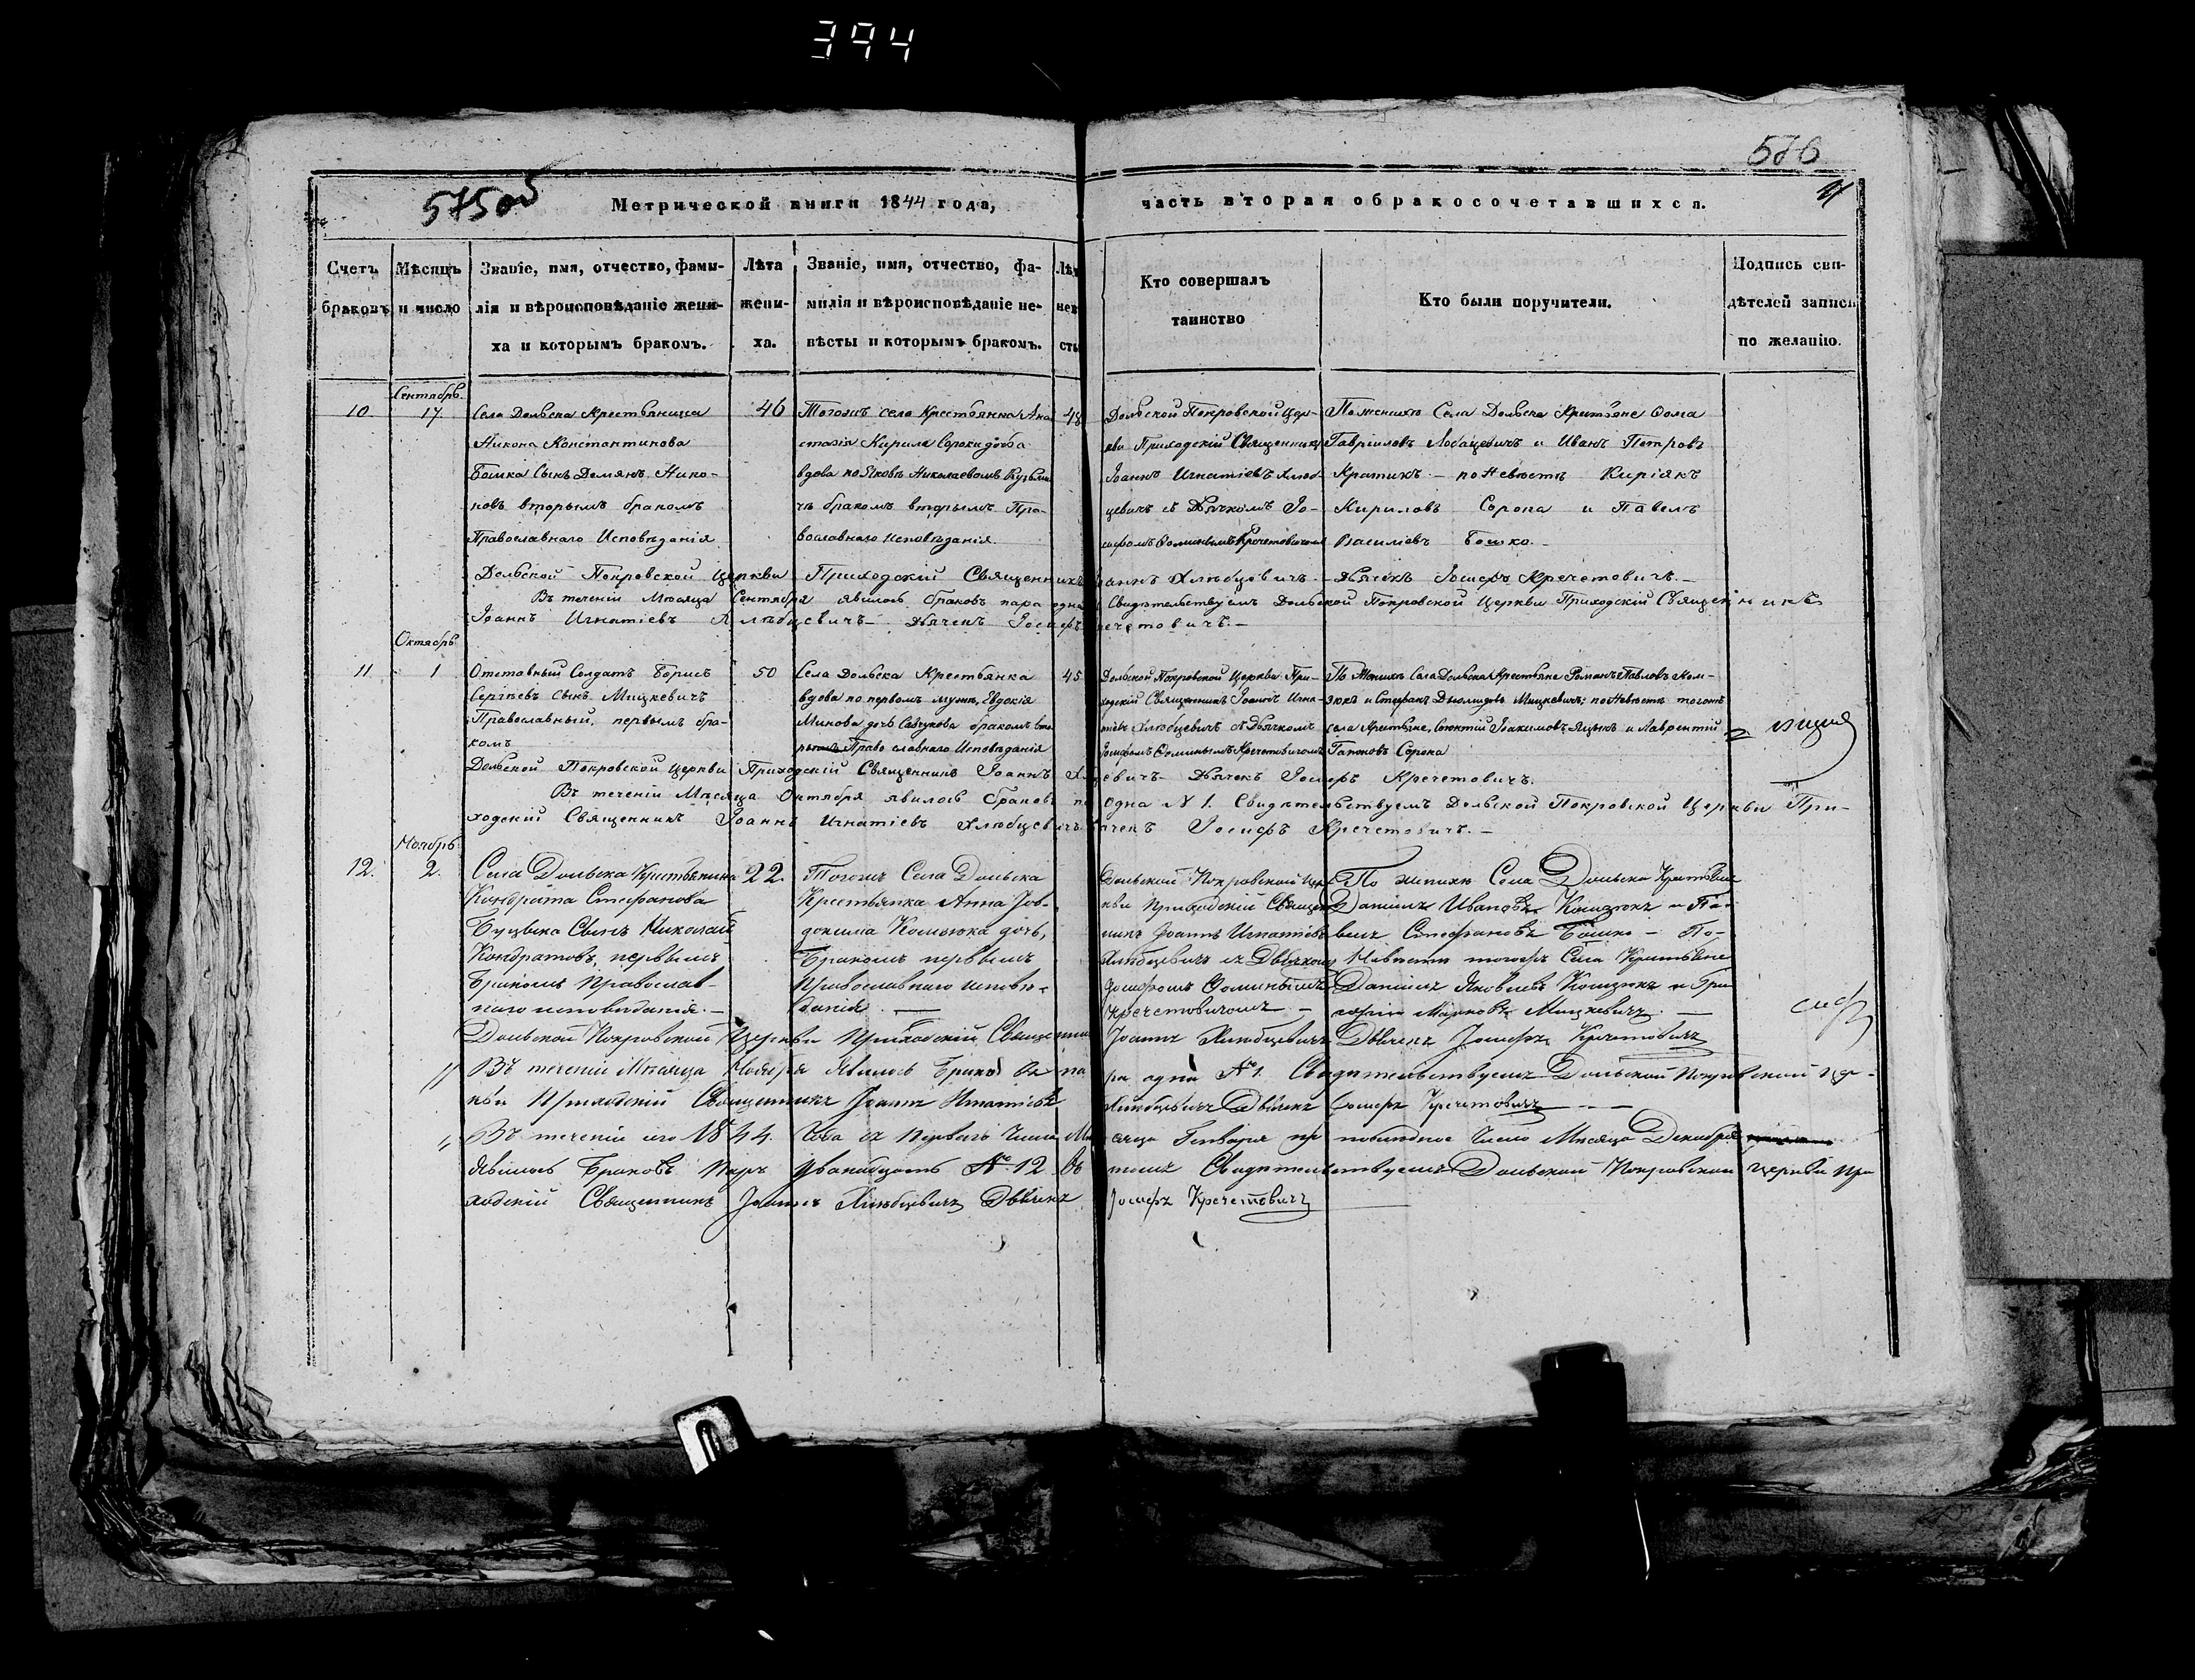 394
576
575 об
Метрической книги 1844 года,
часть вторая о бракосочетавшихся.
Счетъ браковъ
Мѣсяцъ и число
Званіе, имя, отчество, фами-
лія и вѣроисповѣданіе жени-
ха и которымъ бракомъ.
Лѣта
жени-
ха.
Званіе, имя, отчество, фа-
милія и вѣроисповѣданіе не-
вѣсты и которымъ бракомъ.
Лѣ
нев
сты
Кто совершалъ
таинство
Кто были поручители.
Подпись сви-
дѣтелей записи
по желанію.
Сентябрь
10
17.
Села Дольска Крестьянина
Никона Константинова
Бошка Сынъ Демянъ Нико-
новъ вторымъ бракомъ
Православнаго Исповѣданія
46
Тогожъ села Крестьянка Ана
стазія Кирила Сороки дочь
вдова по Яковѣ Николаевомъ Кузьми
чъ бракомъ вторымъ Пра-
вославнаго исповѣданія.
48
Дольской Покровской Цер-
кви Приходскій Священникъ
Іоаннъ Игнатіевъ Хлюб-
цевичъ съ Дьячкомъ Іо-
сифомъ Фоминымъ Кречетовичемъ
По женихѣ Села Дольска Крестьяне Фома
Гавріиловъ Лобацевичъ и Иванъ Петровъ
Кратикъ – по Невѣстѣ Киріякъ
Кириловъ Сорока и Павелъ
Василіевъ Бошко.
Дольской Покровской Церкви Приходскій Священникъ Іоаннъ Хлѣбцевичъ. – Дьячекъ Іосифъ Кречетовичъ. –
Въ теченіи Мѣсяца Сентября явилось браковъ пара одна Свидѣтельствуемъ Дольской Покровской Церкви Приходскій Священникъ
Іоаннъ Игнатіевъ Хлѣбцевичъ – Дьячекъ Іосифъ Кречетовичъ. –
Октябрь
11
1
Отставный Солдатъ Борисъ
Сергѣевъ сынъ Мицкевичъ
Православный, первымъ бра-
комъ
50
Села Дольска Крестьянка
вдова по первомъ мужѣ, Евдокія
Минова дочь Савчукова бракомъ вто
рымъ Право славнаго Исповѣданія
45
Дольской Покровской Церкви При-
ходскій Священникъ Іоаннъ Игна-
тіевъ Хлюбцевичъ съ Дьячкомъ
Іосифомъ Фоминымъ Кречетовичемъ
По Женихѣ Села Дольска Крестьяне Романъ Павловъ Ком-
зюкъ и Стефанъ Мицкевичъ; по Невѣстѣ тогожъ
села Крестьяне, Іоакимовъ Яцукъ и Лаврентій
Гапоновъ Сорока
Дольской Покровской Церкви Приходскій Священникъ Іоаннъ Хлюбцевичъ – Дьячекъ Іосифъ Кречетовичъ.
Въ теченіи Мѣсяца Октября явилось браковъ пара одна N 1. Свидѣтельствуемъ Дольской Покровской Церкви При-
ходскій Священникъ Іоаннъ Игнатіевъ Хлюбцевичъ Дьячекъ Іосифъ Кречетовичъ. –
Ноябрь
12.
2.
Села Дольска Крестьянина
Кондрата Стефанова
Сынъ Николай
Кондратовъ, первымъ
Бракомъ Православ-
наго исповеданія. –
22.
Тогожъ Села Дольска
Крестьянка Анна Іов-
дочь,
Бракомъ первымъ
Православнаго исповѣ-
данія. –
Дольской Покровской Цер
кви Приходскій Священ
никъ Іоаннъ Игнатіевъ
Хлюбцевичъ съ Дьячкомъ
Іосифомъ Фоминымъ
Кречетовичомъ –
По женихѣ Села Дольска Крестьяне
Даніилъ Ивановъ Комзюкъ и Па-
велъ Стефановъ Бошко – По-
Невѣстѣ тогожъ Села Крестьяне
Даніилъ Яковлевъ Комзюкъ и Гри
горій Марковъ Мицкевичъ. –
Дольской Покровской Церкви Приходскій Священникъ Іоаннъ Хлюбцевичъ Дьячекъ Іосифъ Кречетовичъ
Въ теченіи Мѣсяца Ноября Явилось Браковъ па ра одна № 1. Свидѣтельствуемъ Дольской Покровской Цер-
кви Приходскій Священникъ Іоаннъ Игнатіевъ Хлюбцевичъ Дьячекъ Іосифъ Кречетовичъ
Въ теченіи сего 1844. Года съ Перваго Числа Мѣ сяца Генваря по последнее Число Мѣсяца Декабря
Явилось Браковъ Паръ Двенадцать № 12. Въ чемъ Свидѣтельствуемъ Дольской Покровской Церкви При
ходскій Священникъ Іоаннъ Хлюбцевичъ Дьячекъ Іосифъ Кречетовичъ